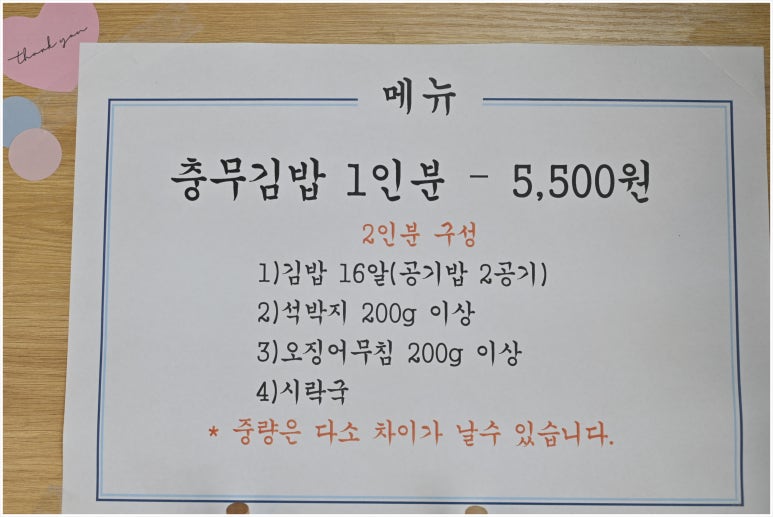 thank you
메뉴
충무김밥 1인분 - 5,500원
2인분 구성
1)김밥 16알(공기밥 2공기)
2)석박지 200g 이상
3)오징어무침 200g 이상
4)시락국
* 중량은 다소 차이가 날수 있습니다.